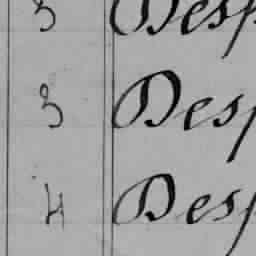 3 Desp
3 Desp
4 Desp